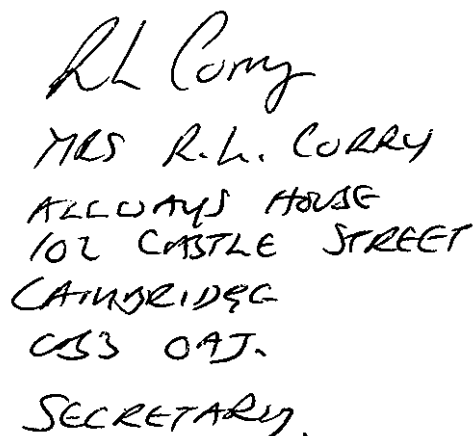 RL Corry
MRS R.L. CORRY
ALLWAYS HOUSE
102 CASTLE STREET
CAMBRIDGE
CB3 0AJ.
SECRETARY.